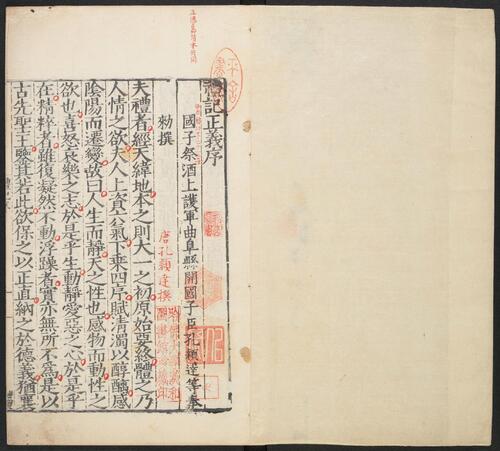 禮記正義序
國子祭酒上護軍曲阜縣開國子臣孔穎達等奉
勑撰
唐孔穎達撰
夫禮者經天緯地本之則大一之初原始要終體之乃
人情之欲夫人上資六氣下乗四序賦清濁以醇醨感
陰陽而遷變故曰人生而靜天之性也感物而動性之
欲也喜怒哀樂之志於是乎生動靜愛惡之心於是乎
在精粹者雖復凝然不動浮躁者實亦無所不爲是以
古先聖王鑒其若此欲保之以正直納之於德義猶襄